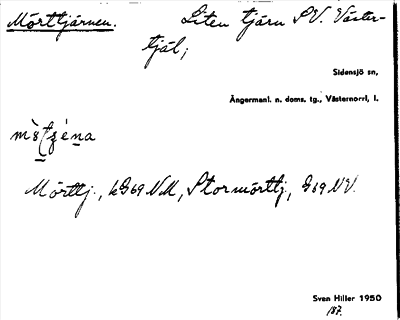 Mörttjärnen. Liten tjärn S.V. Väster-
tjäl;
Sidensjö sn,
Ångermanl. n. doms. tg., Västernorrl, l.
Mörttj., k G69 N.M, Stormörttj., G69 NV.
Sven Hiller 1950
187.